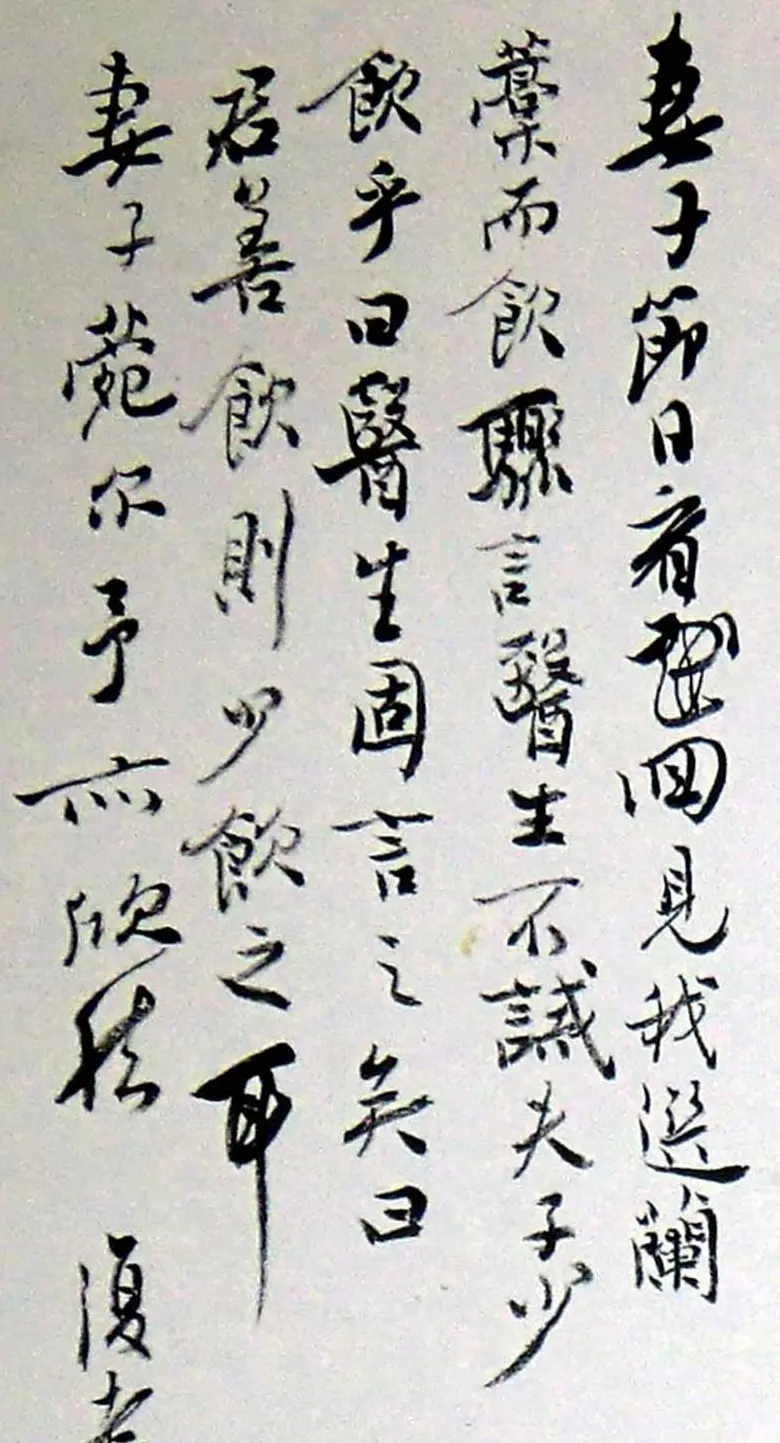 妻子節日看戲回見我選蘭
蘽而飲驟言醫生不誡夫子少
飲乎曰醫生固言之矣曰
君善飲則少飲之耳
妻子薨尔予亦欣然 復